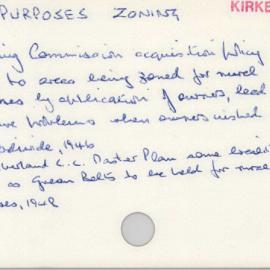 PURPOSES ZONING
KIRKE
ing Commission acquisition policy
to areas being zoned for rural
by application of owners, lead
problems when owners wished
1946
berland C.C. Master Plan some
as Green Belts to be held for rural
1948